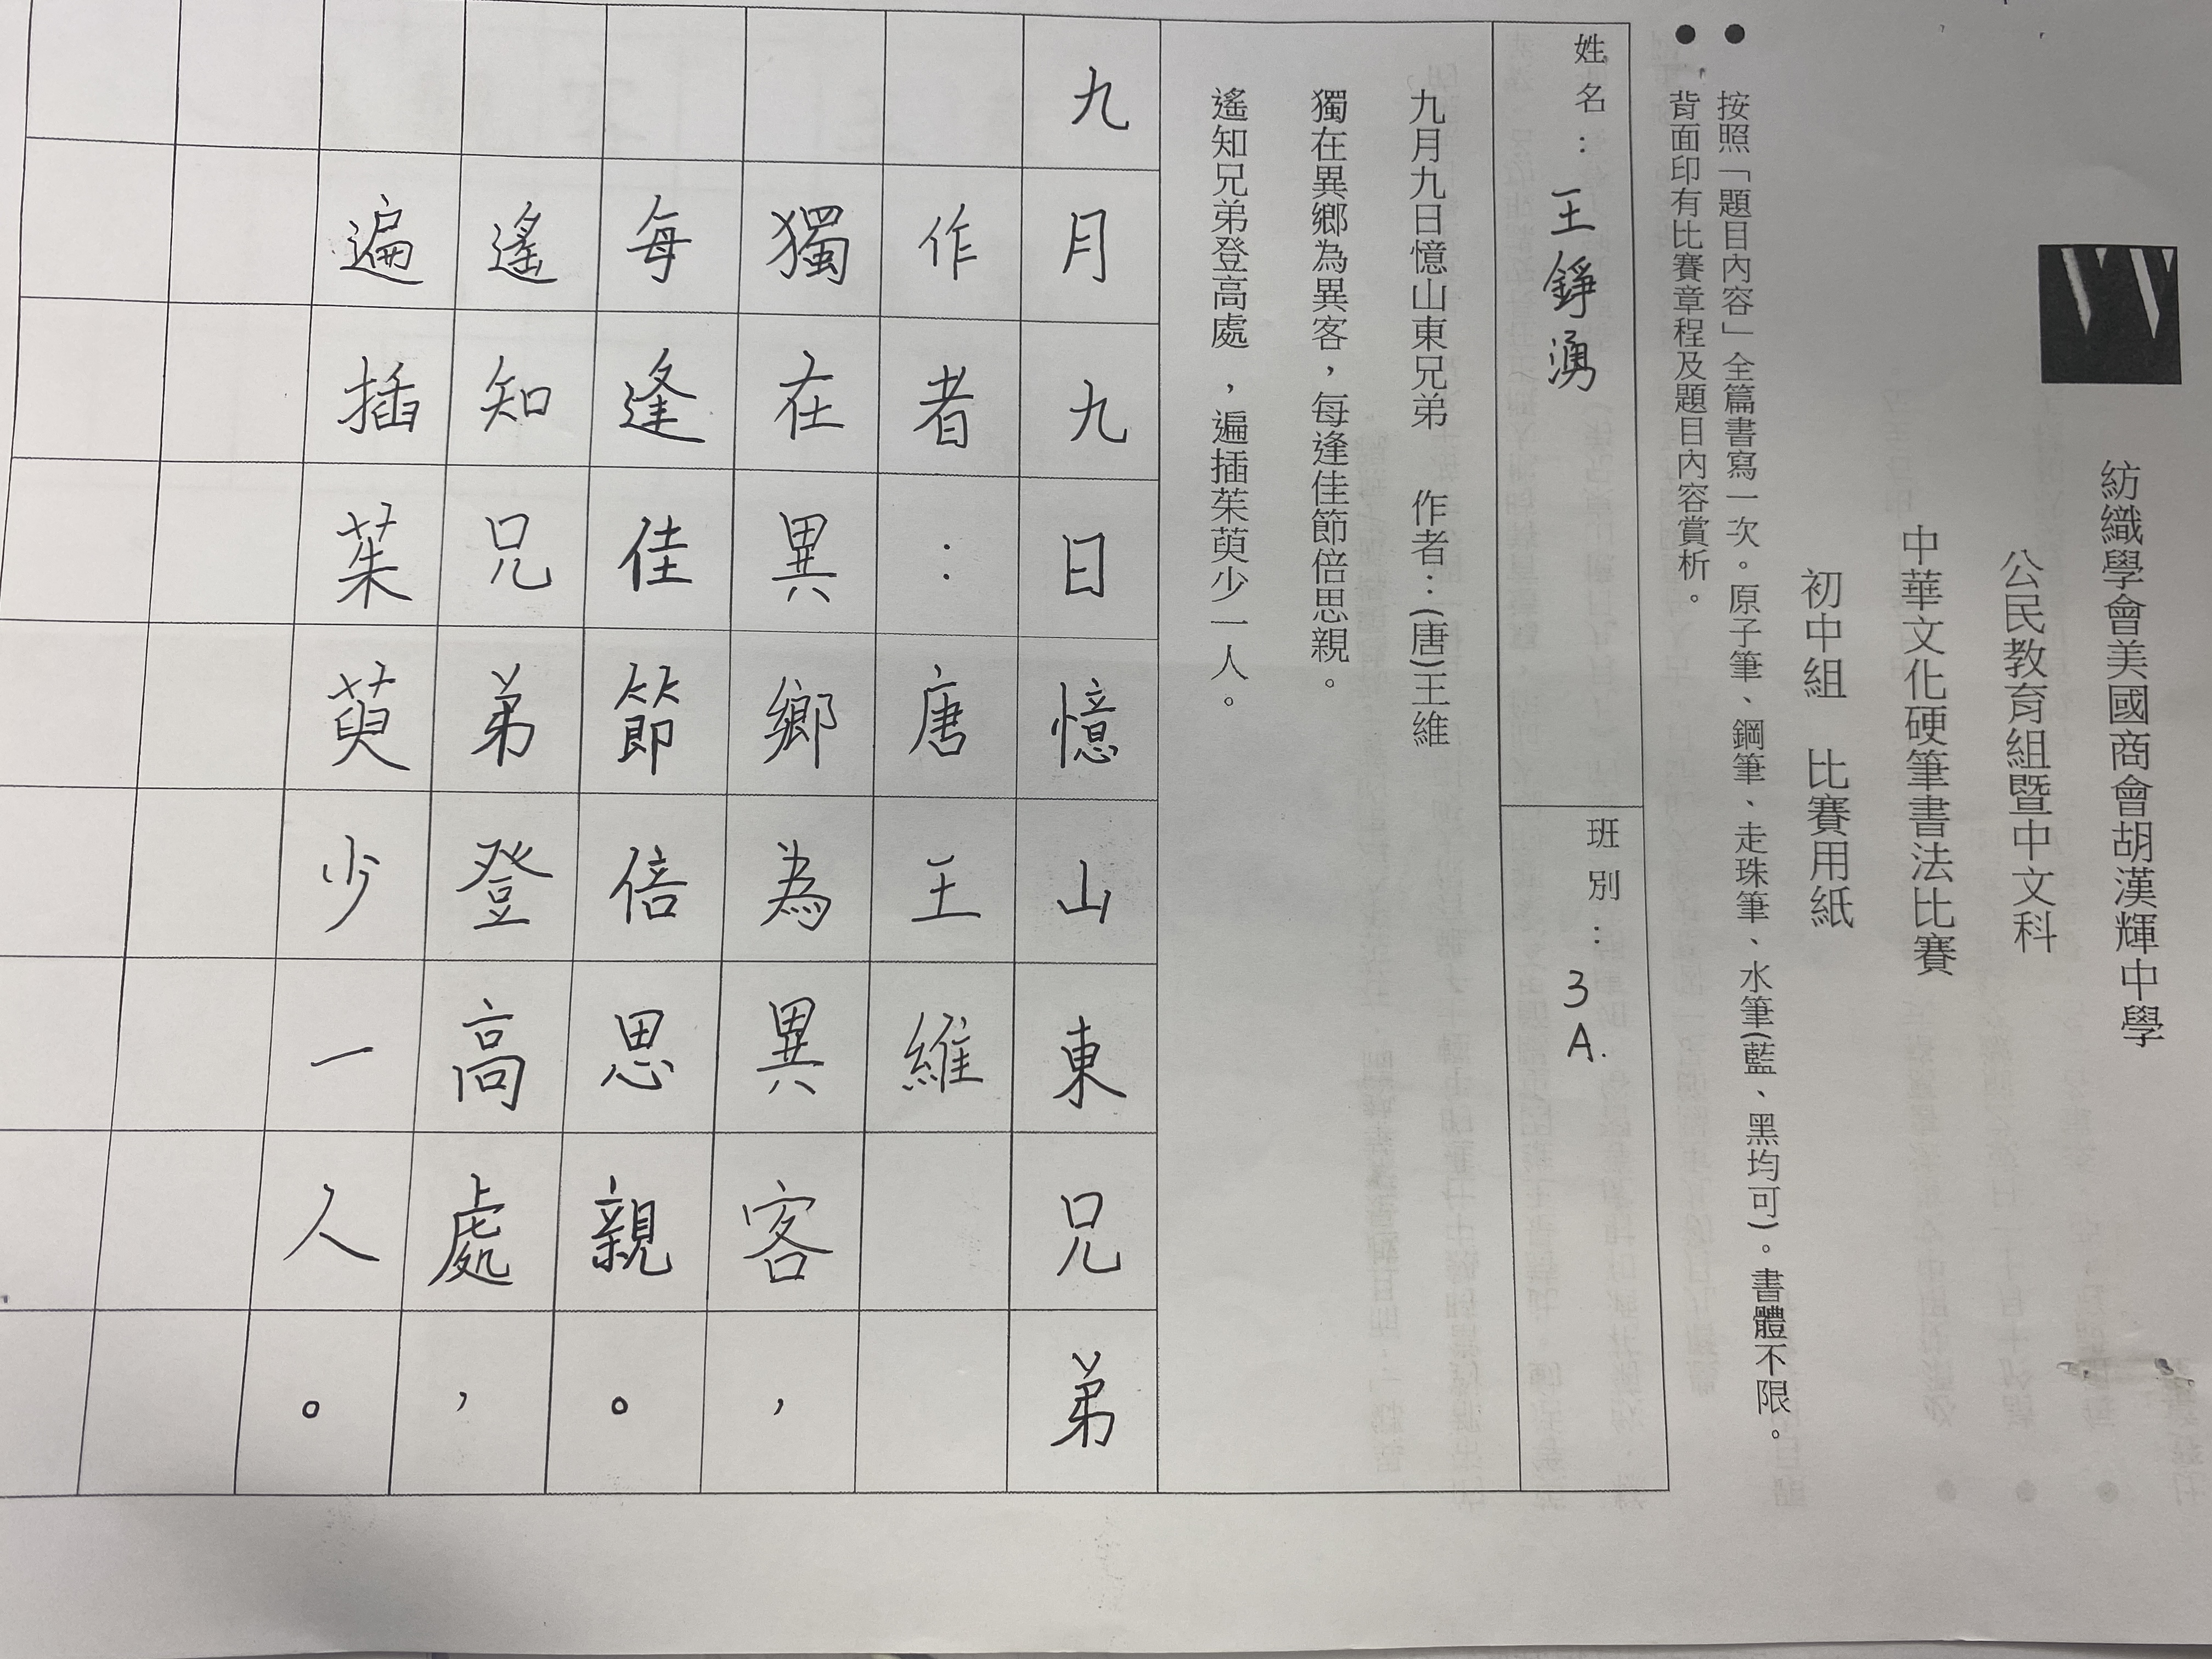 紡織學會美國商會胡漢輝中學
公民教育組暨中文科
中華文化硬筆書法比賽
初中組　比賽用紙
● 按照「題目內容」全篇書寫一次。原子筆、鋼筆、走珠筆、水筆(藍、黑均可)。書體不限。
● 背面印有比賽章程及題目內容賞析。
姓名：王錚湧
班別：3A.
九月九日憶山東兄弟　作者：(唐)王維
獨在異鄉為異客，每逢佳節倍思親。
遙知兄弟登高處，遍插茱萸少一人。
九月九日憶山東兄弟
作者：唐王維
獨在異鄉為異客，
每逢佳節倍思親。
遙知兄弟登高處，
遍插茱萸少一人。